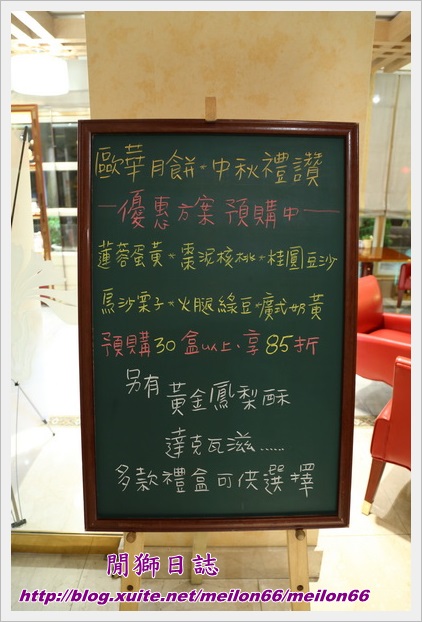 歐華月餅·中秋禮讚
—優惠方案預購中—
蓮蓉蛋黃*棗泥核桃*桂圓豆沙
烏沙栗子*火腿綠豆*廣式奶黃
預購30盒以上、享85折
另有黃金鳳梨酥
達克瓦滋......
多款禮盒可供選擇
閒獅日誌
http://blog.xuite.net/meilon66/meilon66